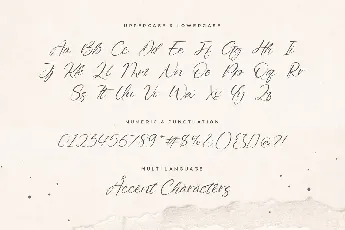 UPPERCASE & LOWERCASE
Aa Bb Cc Dd Ee Ff Gg Hh Ii
Jj Kk Ll Mm Nn Oo Pp Qq Rr
Ss Tt Uu Vv Ww Xx Yy Zz
NUMERIC & PUNCTUATION
0123456789*#$%&(){}[]@?!
MULTI LANGUAGE
Accent Characters